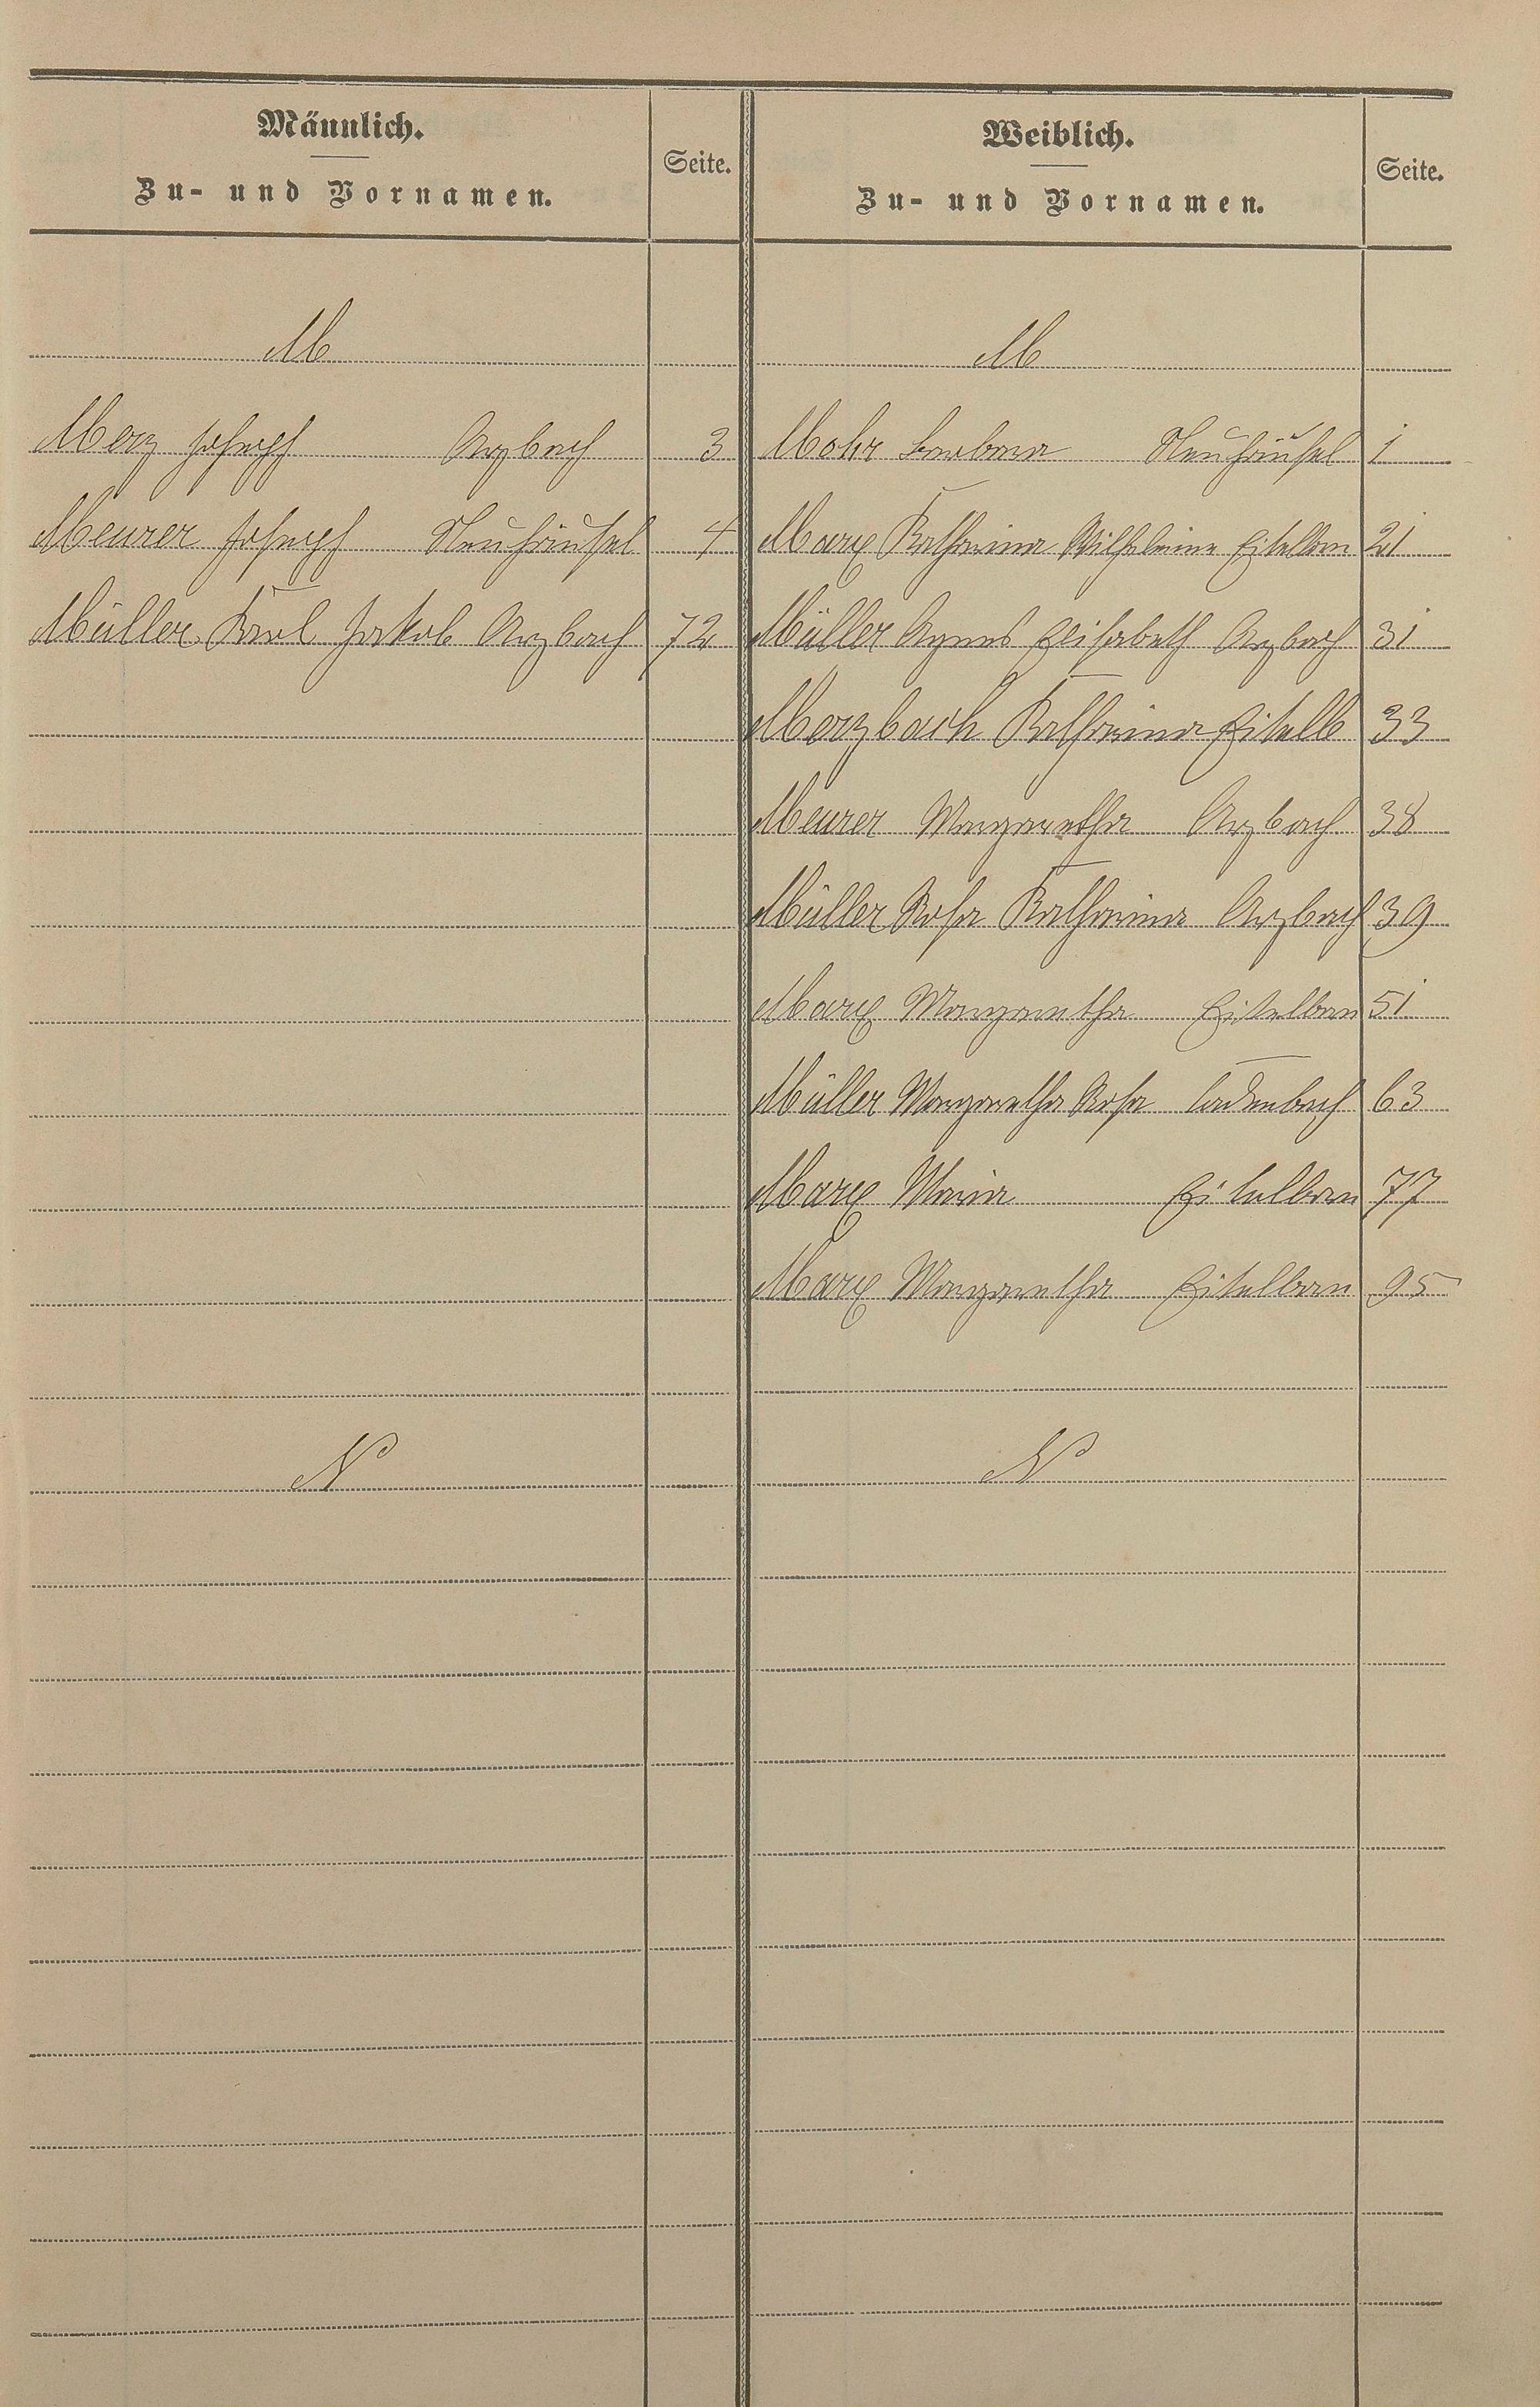 Männlich.
Zu- und Vornamen.
Seite.
M
Merz Joseph Arzbach 3
Meurer Joseph Neuhäusel 4
Müller Karl Jakob Arzbach 72
N
Weiblich.
Zu- und Vornamen.
Seite.
M
Mohr Barbara Neuhäusel 1
Marx Katharina Wilhelmine Eitelborn 21
Müller Agnes Elisabeth Arzbach 31
Merzbach Katharina Eitelb 33
Meurer Margaretha Arzbach 38
Müller Rosa Katharina Arzbach 39
Marx Margaretha Eitelborn 51
Müller Margaretha Rosa Cadenbach 63
Marx Maria Eitelborn 77
Marx Margaretha Eitelborn 95
N